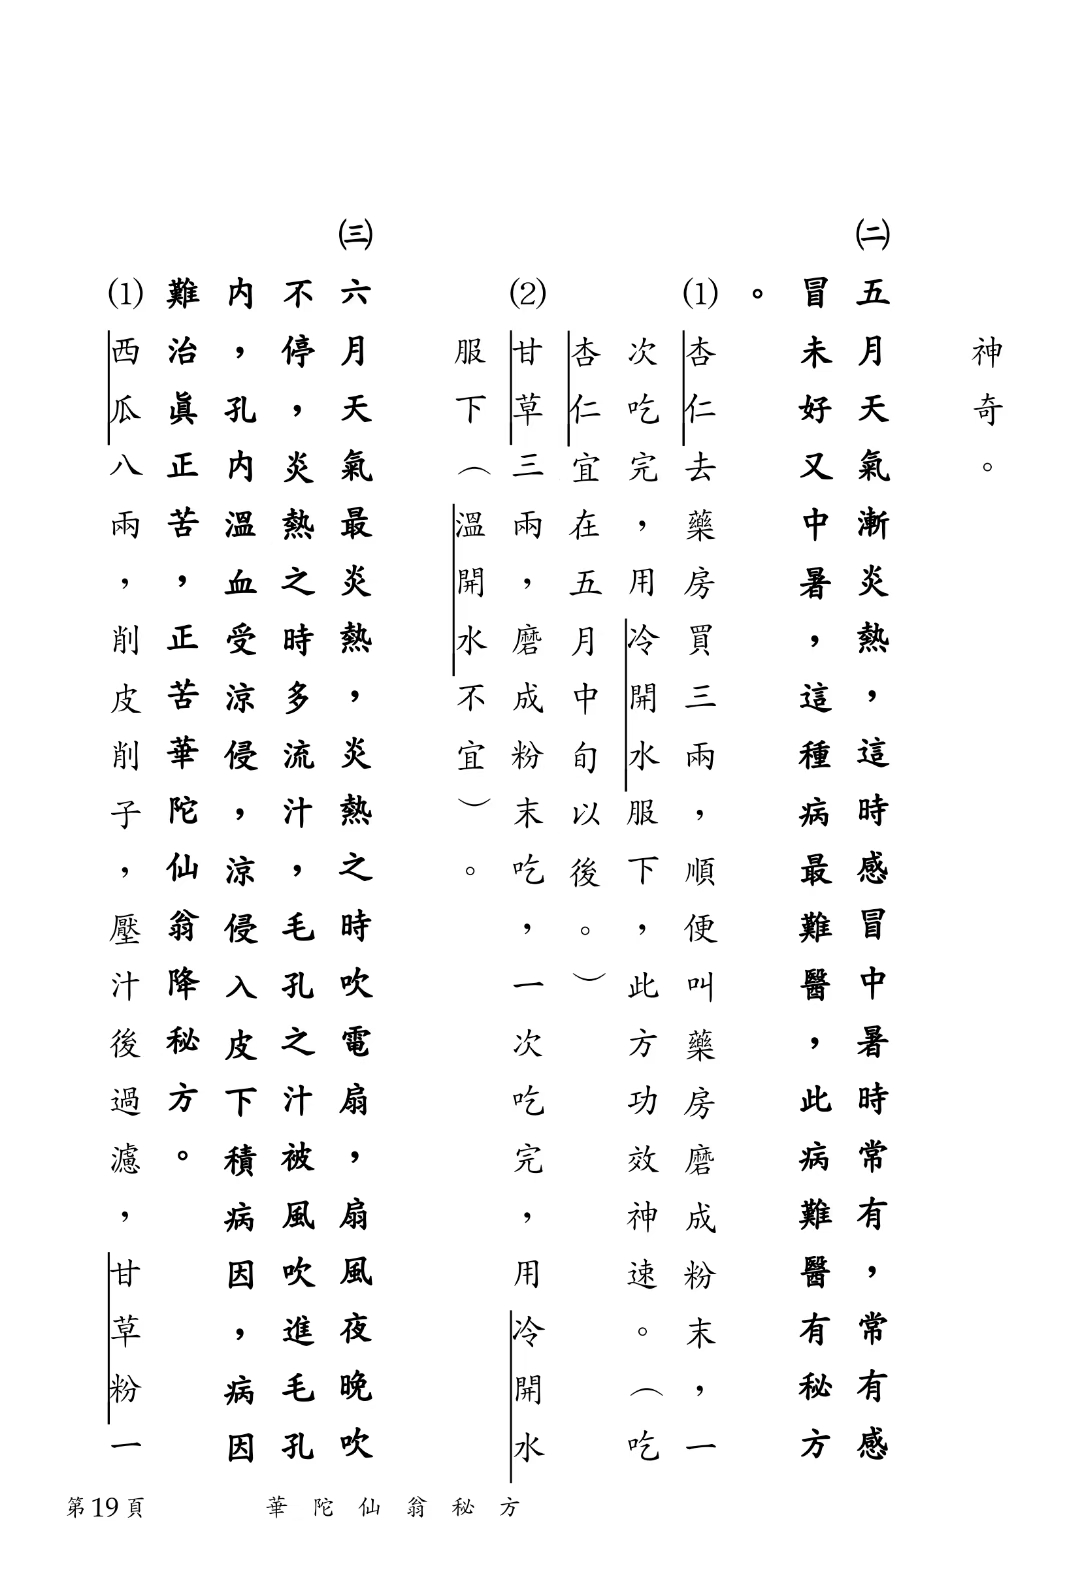 神奇。
㈡五月天氣漸炎熱，這時感冒中暑時常有，常有感
冒未好又中暑，這種病最難醫，此病難醫有秘方
。
⑴杏仁去藥房買三兩，順便叫藥房磨成粉末，一
次吃完，用冷開水服下，此方功效神速。（吃
杏仁宜在五月中旬以後。）
⑵甘草三兩，磨成粉末吃，一次吃完，用冷開水
服下（溫開水不宜）。
㈢六月天氣最炎熱，炎熱之時吹電扇，扇風夜晚吹
不停，炎熱之時多流汁，毛孔之汁被風吹進毛孔
内，孔内溫血受涼侵，涼侵入皮下積病因，病因
難治眞正苦，正苦華陀仙翁降秘方。
⑴西瓜八兩，削皮削子，壓汁後過濾，甘草粉一
第19頁 華陀仙翁秘方